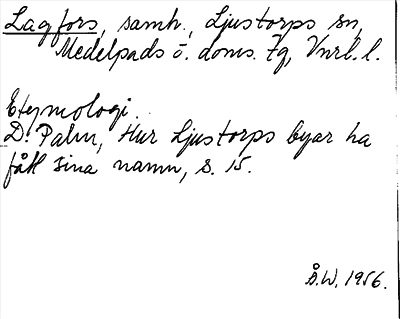 Lagfors, samh., Ljustorps sn,
Medelpads ö. doms. fg, Vnrl. l.
Etymologi.
D. Palm, Hur Ljustorps byar ha
fått sina namn, s. 15.
Å.W. 1956.